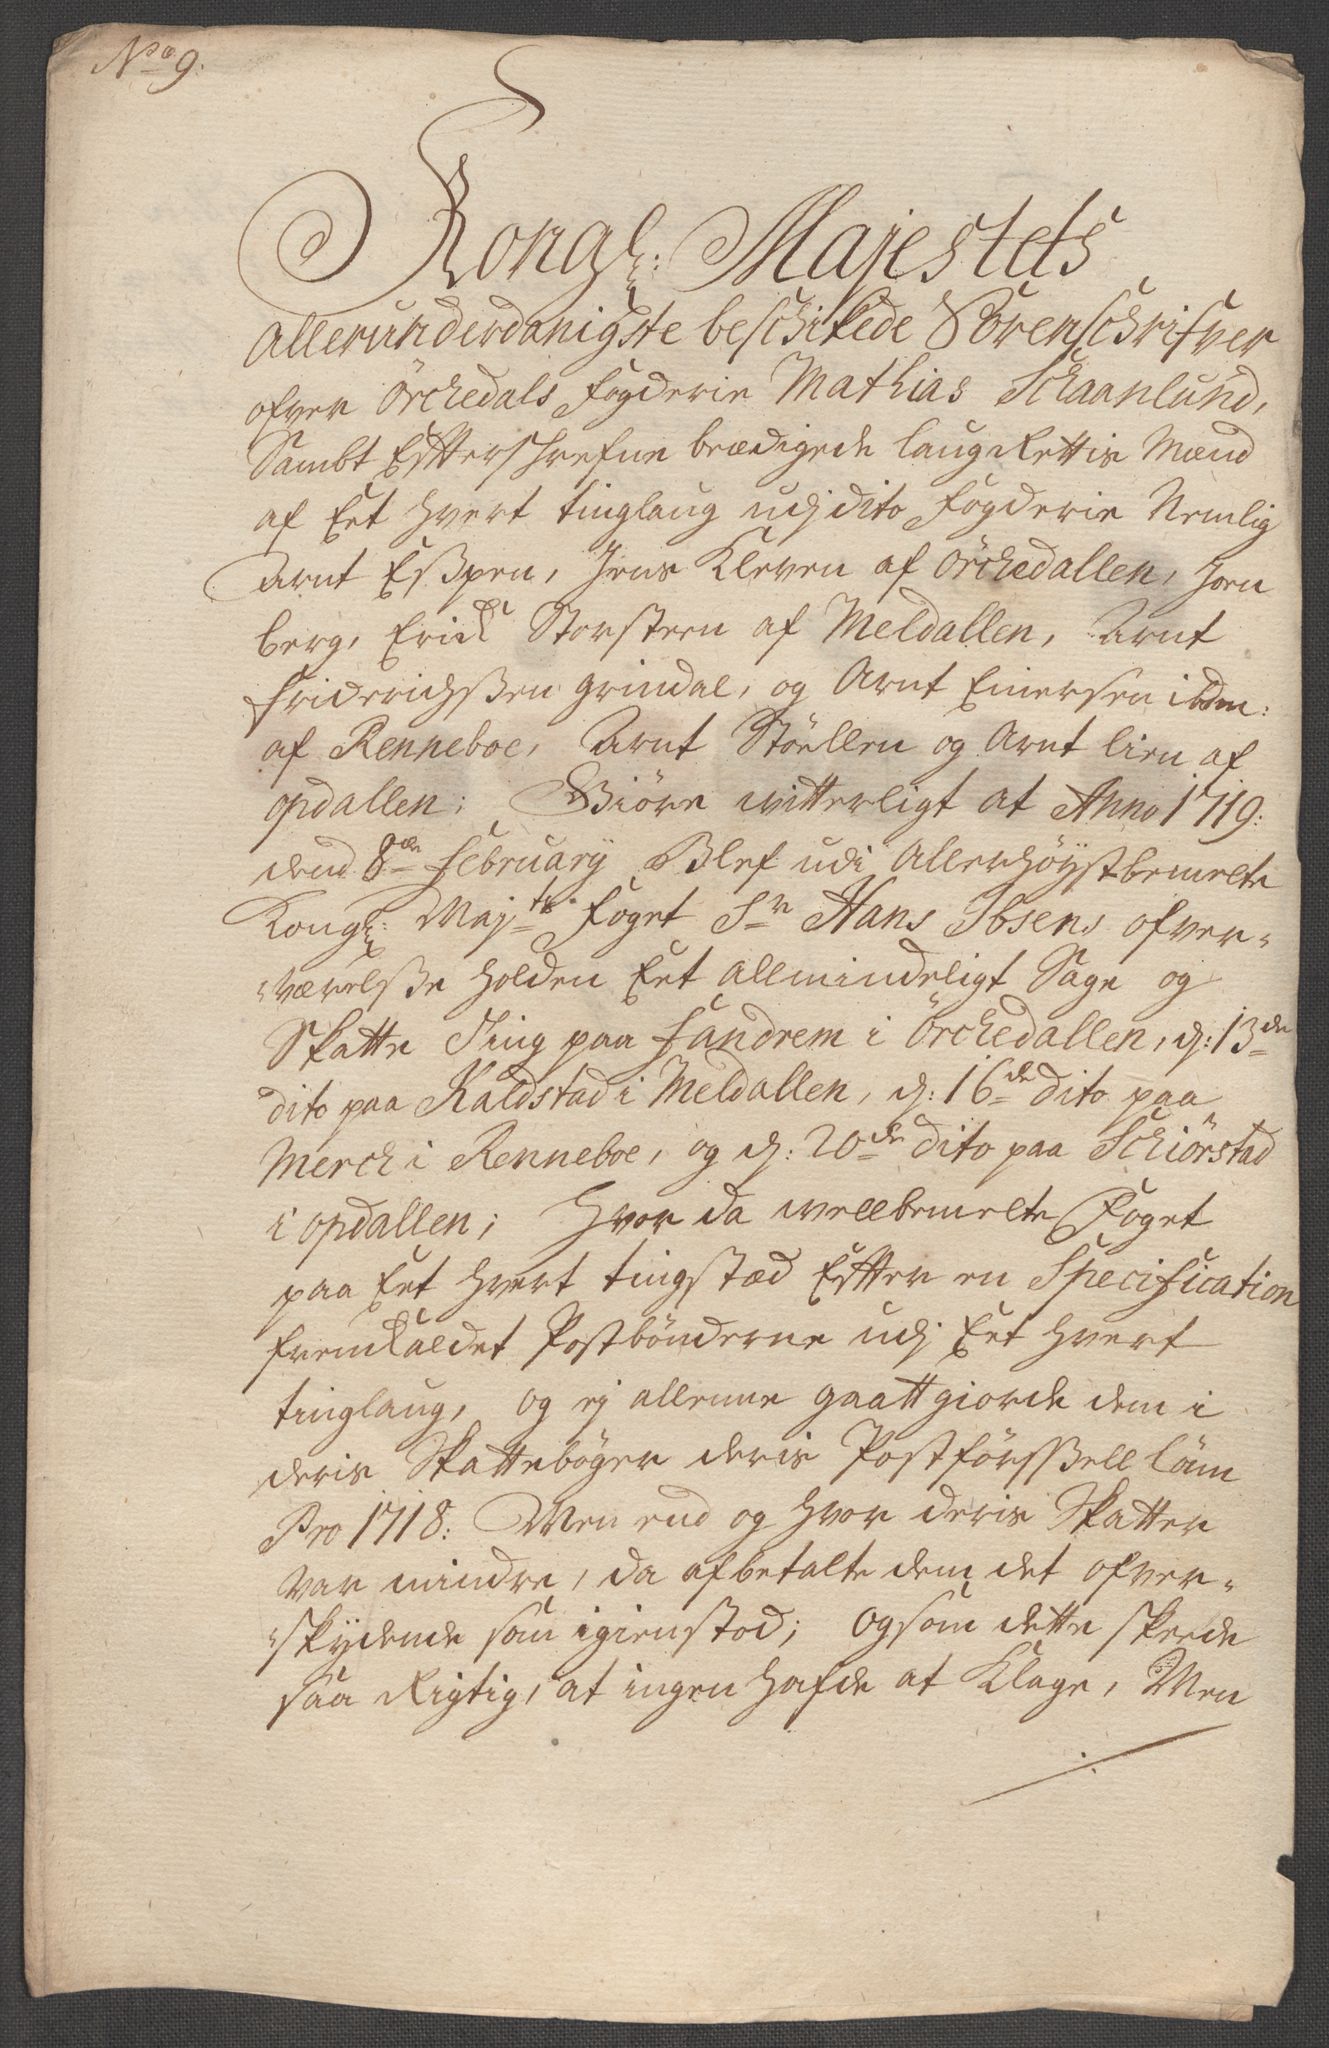 No 9.
Kongl: Majestets
allerunderdanigste beschikede Sorenschrifver
ofver Örckedals fogderie Mathias Schaanlund,
Sambt Effterschrefne beædigede laug Rettis Mænd
af Eet hvert tinglaug udj dito fogderie Nemlig
Arnt Eßpen, Jens Kleven af Örckedallen, Joen
berg, Erick Storsteen af Meldallen, Arnt
Friderichßen Grindal, og Arnt Einersen ibdm:
af Renneboe, Arnt Stöellen og Arnt lien af
opdallen; Giöre witterligt at Anno 1719:
dend 8de February Blef udi Allerhöystbemelte
Kongl: Majts: foget Sr Hans Ibsens ofver-
-værelße holden Eet allmindeligt Sage og
Skatte Ting paa Fandrem i Örckedallen, d: 13de
dito paa Kaldstad i Meldallen, d: 16de dito paa
Merck i Renneboe, og d: 20de dito paa Schiörstad
i opdallen; Hvor da wellbemelte Foget
paa Eet hvert tingstæd Effter en Specification
fremkaldet Postbönderne udj Eet hvert
tinglaug, og ej allene gaatt giorde dem i
deris Skattebøger deris Postförßell löen
Pro 1718: Men end og hvor deris Skatter
var mindre, da afbetalte dem det ofver-
-skydende som igienstod; og som dette skeede
saa Rigtig, at ingen hafde at Klage, Men